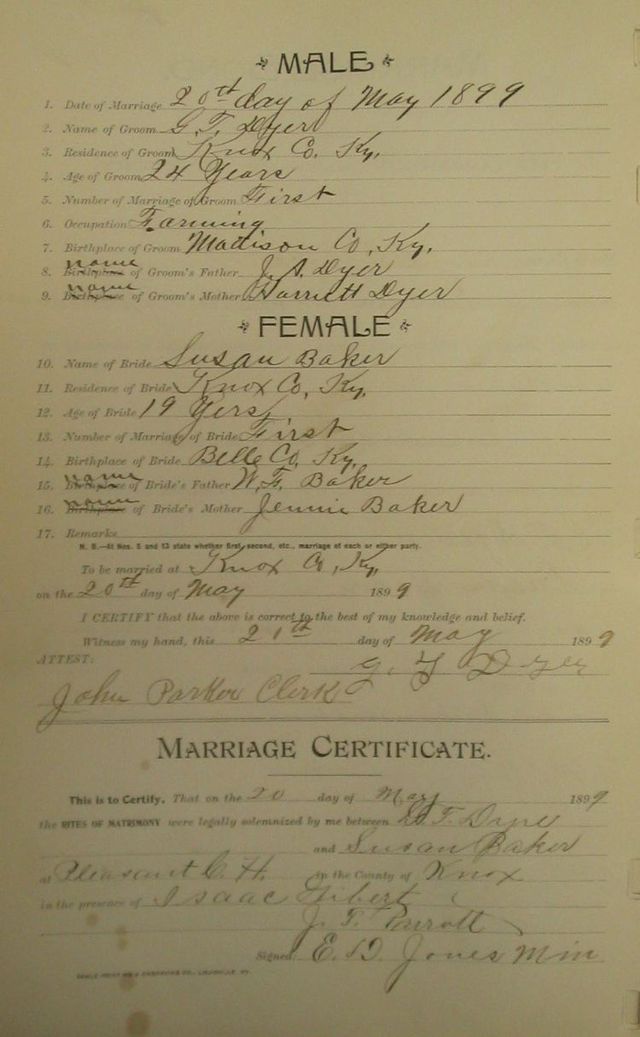 MALE
1. Date of Marriage 20th day of May 1899
2. Name of Groom G. T. Dyer
3. Residence of Groom Knox Co. Ky.
4. Age of Groom 24 Years
5. Number of Marriage of Groom First
6. Occupation Farming
7. Birthplace of Groom Madison Co, Ky.
8. Birthplace name of Groom's Father J. A. Dyer
9. Birthplace name of Groom's Mother Harriett Dyer
FEMALE
10. Name of Bride Susan Baker
11. Residence of Bride Knox Co, Ky.
12. Age of Bride 19 Yers
13. Number of Marriage of Bride First
14. Birthplace of Bride Belle Co, Ky.
15. Birthplace name of Bride's Father W. F. Baker
16. Birthplace name of Bride's Mother Jennie Baker
17. Remarks
N. B.—At Nos. 5 and 13 state whether first, second, etc., marriage of each or either party.
To be married at Knox Co, Ky,
on the 20th day of May 1899
I CERTIFY that the above is correct to the best of my knowledge and belief.
Witness my hand, this 21th day of May 1899
ATTEST: G. T Dyer
John Parker Clerk
MARRIAGE CERTIFICATE.
This is to Certify, That on the 20 day of May 1899
the RITES OF MATRIMONY were legally solemnized by me between T. Dyre
and Susan Baker
at Pleasant C. H. in the County of Knox
in the presence of Isaac
J. T. Parrott
Signed, E. D. Jones Min